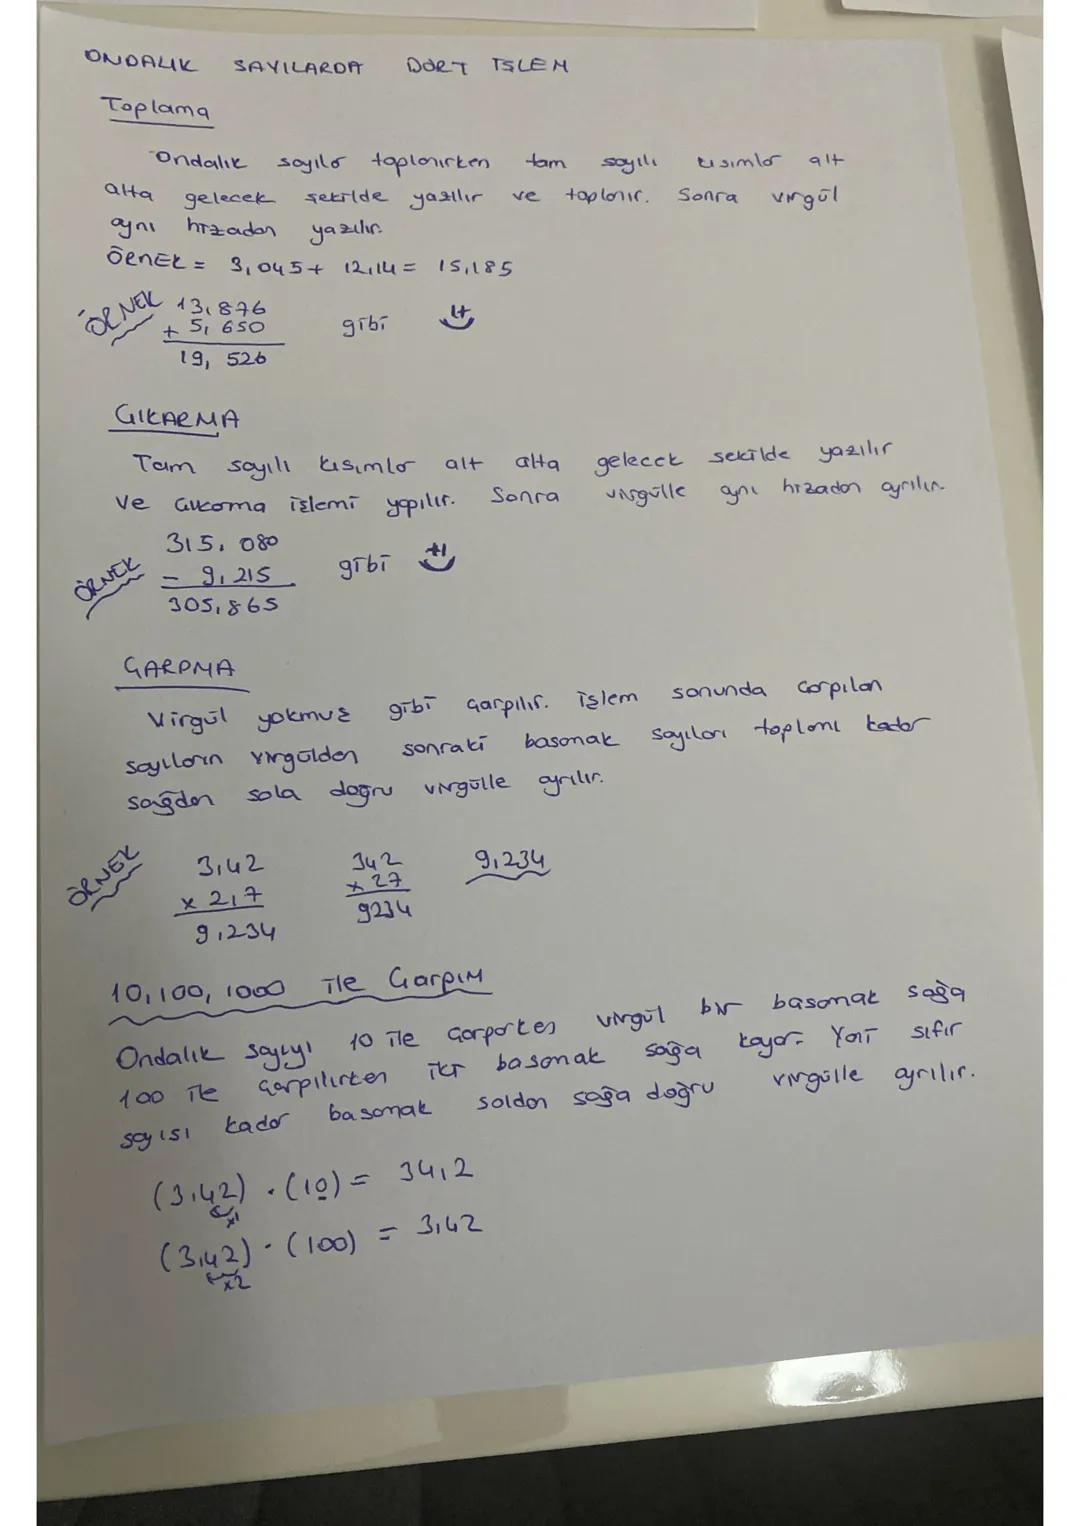 ONDALIK SAYILARDA DÖRT İŞLEM
Toplama
Ondalık sayılar toplanırken tam sayılı kısımlar alt
alta gelecek şekilde yazılır ve toplanır. Sonra virgül
aynı hizadan yazılır.
ÖRNEK = 3,045 + 12,14 = 15,185
ÖRNEK 13,876
+ 5,650 gibi
19,526
ÇIKARMA
Tam sayılı kısımlar alt alta gelecek şekilde yazılır
ve çıkarma işlemi yapılır. Sonra virgülle aynı hizadan ayrılır.
315,080
ÖRNEK - 9,215 gibi
305,865
ÇARPMA
Virgül yokmuş gibi çarpılır. işlem sonunda çarpılan
sayıların virgülden sonraki basamak sayıları toplamı kadar
sağdan sola doğru virgülle ayrılır.
ÖRNEK 3,42 342 9,234
x 2,7 x 27
9,234 9234
10,100,1000 ile Çarpım
Ondalık sayıyı 10 ile çarparken virgül bir basamak sağa
100 ile çarpılırken iki basamak sağa kayar. Yani sıfır
sayısı kadar basamak soldan sağa doğru virgülle ayrılır.
(3,42) . (10) = 34,2
x1
(3,42) . (100) = 3,42
x2